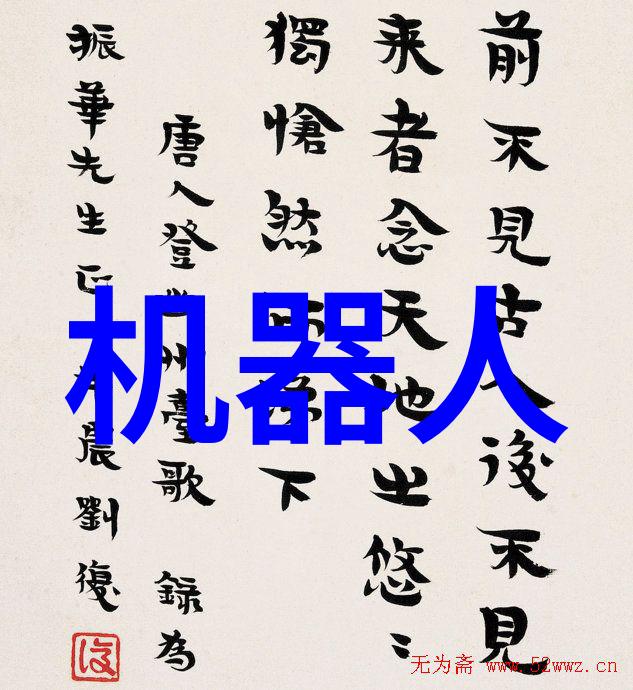 前不見古人後不見
来者念天地之悠〻
獨愴然而涕下
唐人登幽州臺歌 錄為
振華先生正 晨劉復
机器人
无为斋 www.52wwz.cn